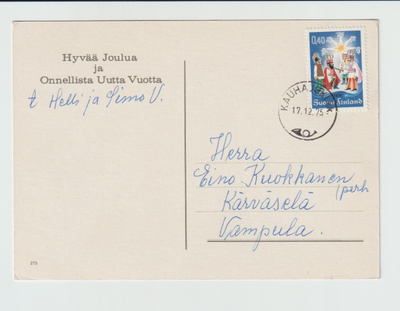 Hyvää Joulua
ja
Onnellista Uutta Vuotta
t Helli ja Simo V.
0,40
Suomi Finland
17.12.75
Herra
Eino Kuokkanen
perh
Kärväselä
Vampula.